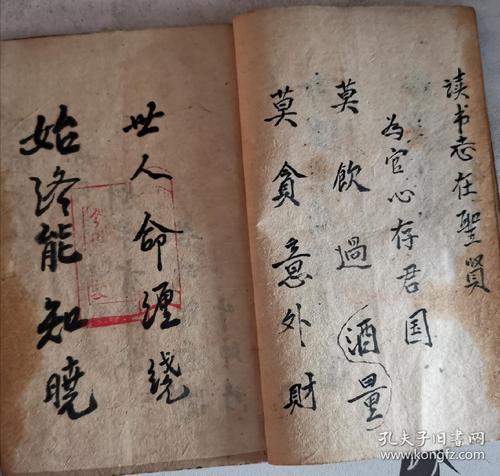 读书志在聖賢
为官心存君国
莫飲過酒量
莫貪意外財
世人命缠绕
始终能知曉
孔夫子旧书网
www.kongfz.com